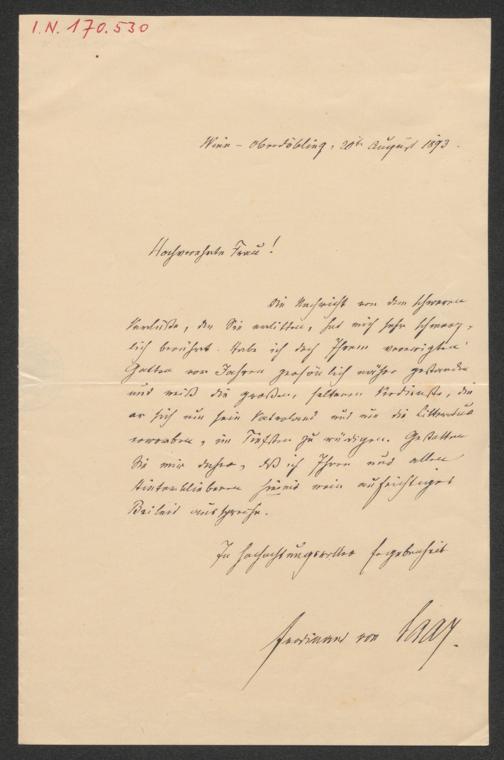 I.N. 170.530
Wien – Oberdöbling, 20ten August 1893.
Hochverehrte Frau!
Die Nachricht von dem schweren
Verluste, den Sie erlitten, hat mich sehr schmerz-
lich berührt. Habe ich doch Ihrem verewigten
Gatten vor Jahren persönlich näher gestanden
und weiß die großen, seltenen Verdienste, die
er sich um sein Vaterland und um die Litteratur
erworben, im Tiefsten zu würdigen. Gestatten
Sie mir daher, daß ich Ihnen und allen
Hinterbliebenen hiemit mein aufrichtiges
Beileid ausspreche.
In hochachtungsvoller Ergebenheit
Ferdinand von Saar.